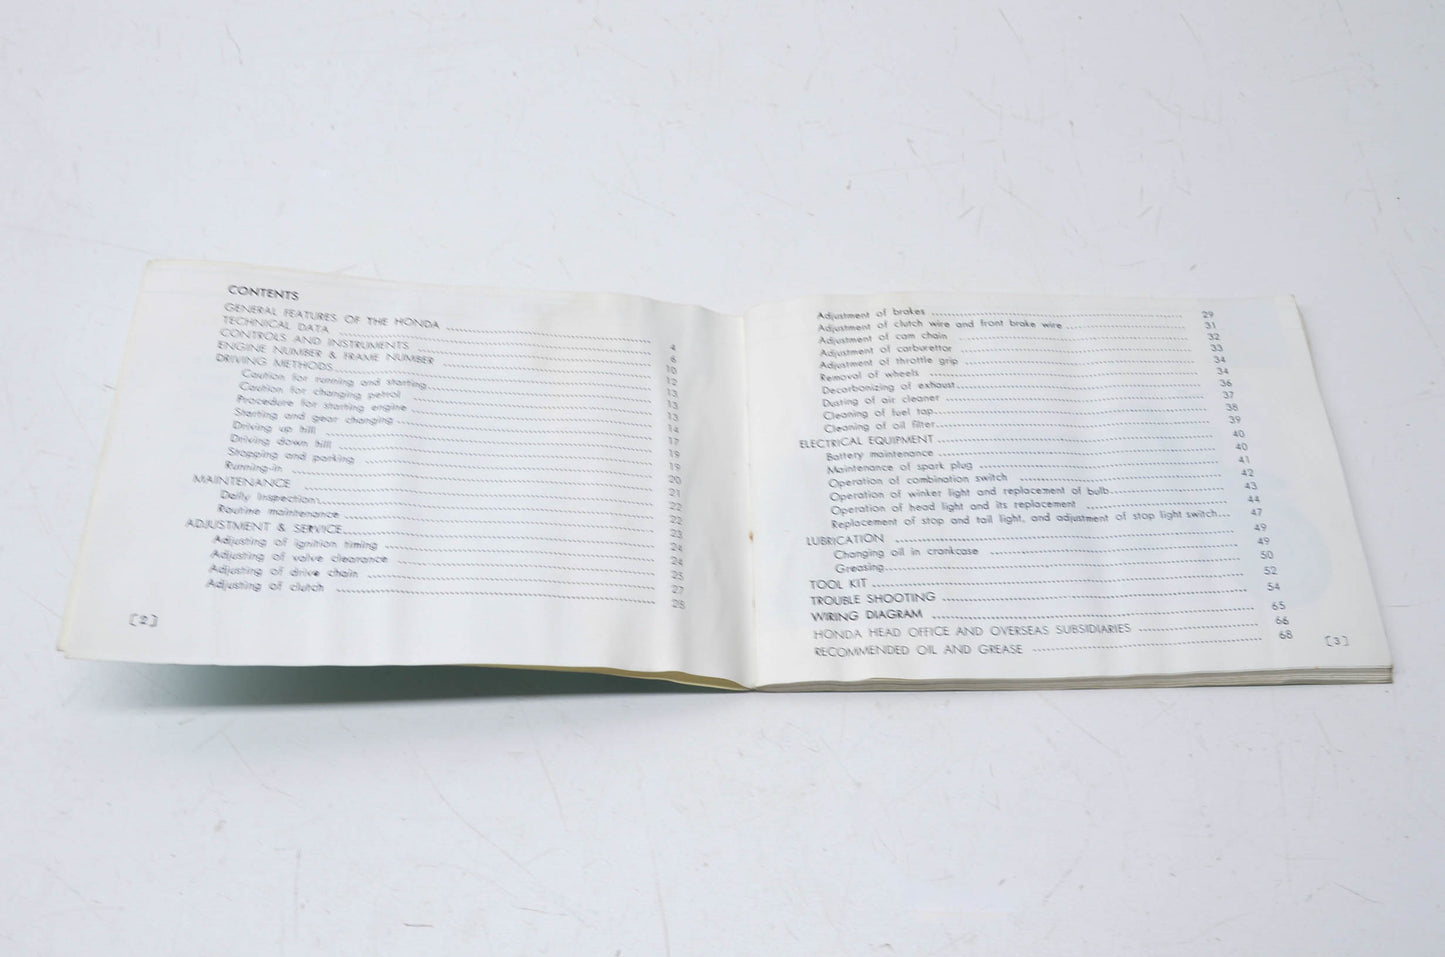 CONTENTS
GENERAL FEATURES OF THE HONDA 4
TECHNICAL DATA 6
CONTROLS AND INSTRUMENTS 10
ENGINE NUMBER & FRAME NUMBER 12
DRIVING METHODS 13
Caution for running and starting 13
Caution for changing petrol 13
Procedure for starting engine 14
Starting and gear changing 17
Driving up hill 19
Driving down hill 19
Stopping and parking 20
Running-in 21
MAINTENANCE 22
Daily Inspection 22
Routine maintenance 23
ADJUSTMENT & SERVICE 24
Adjusting of ignition timing 24
Adjusting of valve clearance 25
Adjusting of drive chain 27
Adjusting of clutch 28
[2]
Adjustment of brakes 29
Adjustment of clutch wire and front brake wire 31
Adjustment of cam chain 32
Adjustment of carburettor 33
Adjustment of throttle grip 34
Removal of wheels 34
Decarbonizing of exhaust 36
Dusting of air cleaner 37
Cleaning of fuel tap 38
Cleaning of oil filter 39
ELECTRICAL EQUIPMENT 40
Battery maintenance 40
Maintenance of spark plug 41
Operation of combination switch 42
Operation of winker light and replacement of bulb 43
Operation of head light and its replacement 44
Replacement of stop and tail light, and adjustment of stop light switch 47
LUBRICATION 49
Changing oil in crankcase 49
Greasing 50
TOOL KIT 52
TROUBLE SHOOTING 54
WIRING DIAGRAM 65
HONDA HEAD OFFICE AND OVERSEAS SUBSIDIARIES 66
RECOMMENDED OIL AND GREASE 68
[3]